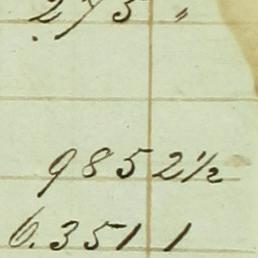 273 "
9852½
6.3511